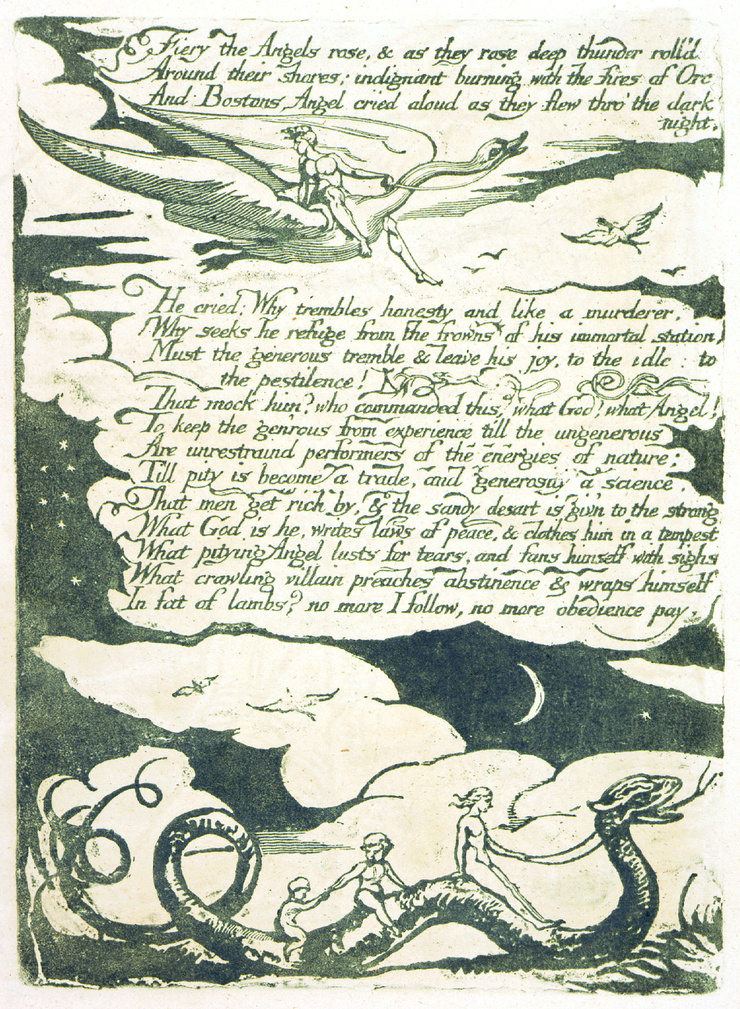 Fiery the Angels rose, & as they rose deep thunder roll'd
Around their shores: indignant burning with the fires of Orc
And Bostons Angel cried aloud as they flew thro' the dark
night.
He cried: Why trembles honesty and like a murderer,
Why seeks he refuge from the frowns of his immortal station!
Must the generous tremble & leave his joy, to the idle: to
the pestilence!
That mock him? who commanded this? what God? what Angel!
To keep the gen'rous from experience till the ungenerous
Are unrestraind performers of the energies of nature;
Till pity is become a trade, and generosity a science,
That men get rich by, & the sandy desart is giv'n to the strong
What God is he, writes laws of peace, & clothes him in a tempest
What pitying Angel lusts for tears, and fans himself with sighs
What crawling villain preaches abstinence & wraps himself
In fat of lambs? no more I follow, no more obedience pay.